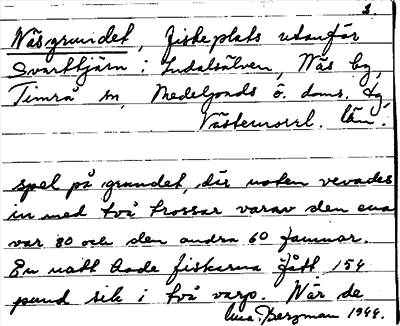 3.
Näsgrundet, fiskeplats utanför
Svarttjärn i Indalsälven, Näs by,
Timrå sn, Medelpads ö. doms. tg,
Västernorrl. län.
spel på grundet, där noten vevades
in med två trossar varav den ena
var 80 och den andra 60 famnar.
En natt hade fiskarna fått 154
pund sik i två varp. När de
Bergman 1944.